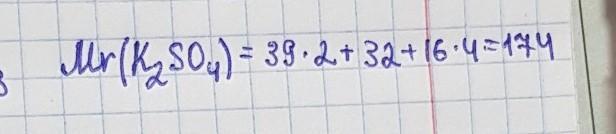 Mr(K₂SO₄) = 39·2 + 32 + 16·4 = 174